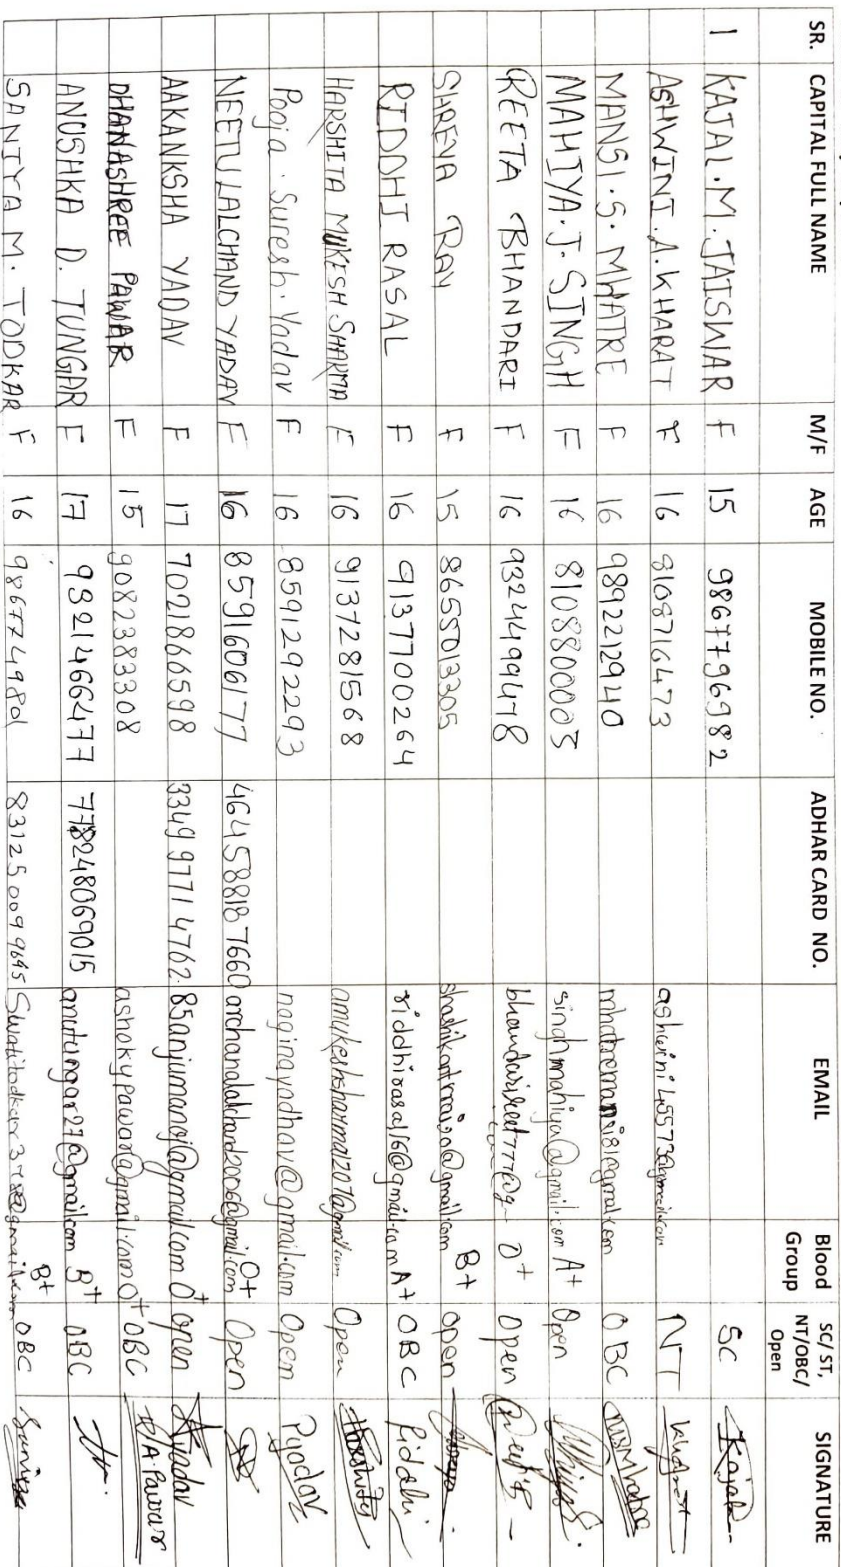 SR. CAPITAL FULL NAME M/F AGE MOBILE NO. ADHAR CARD NO. EMAIL Blood Group SC/ST, NT/OBC/ Open SIGNATURE
1 KAJAL.M.JAISWAR F 15 9867796982 SC Kajal
ASHWINI.A.KHARAT F 16 8108716473 NT Kharat
MANSI.S.MHATRE F 16 9892212940 OBC
MAHIYA.J.SINGH F 16 singhmahiya@gmail.com A+ Open
REETA BHANDARI F 16 O+ Open
SHREYA RAY F 15 8655013305 B+ open
RIDDHI RASAL F 16 9137700264 riddhirasal16@gmail.com A+ OBC Riddhi
HARSHITA MUKESH SHARMA F 16 9137281568 amukeshsharma1207@gmail.com Open
Pooja.Suresh.Yadav F 16 8591292293 naginayadhav@gmail.com Open Pyadav
NEETU LALCHAND YADAV F 16 8591606177 464588187660 O+ Open
AAKANKSHA YADAV F 17 7021866598 3349 9771 4762 85anjumanoj@gmail.com O+ open Ayadav
DHANASHREE PAWAR F 15 9082383308 ashokypawar@gmail.com O+ OBC D.A.Pawar
ANUSHKA D. TUNGAR F 17 9321466477 778248069015 anutungar27@gmail.com B+ OBC
SANIYA M. TODKAR F 16 9867749801 83125009 9645 B+ OBC